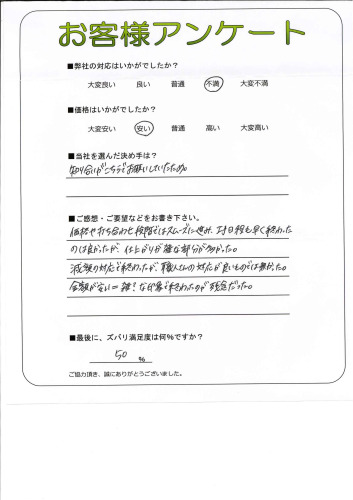 お客様アンケート
■弊社の対応はいかがでしたか？
大変良い 良い 普通 不満 大変不満
■価格はいかがでしたか？
大変安い 安い 普通 高い 大変高い
■当社を選んだ決め手は？
知り合いがこちらでお願いしていたため。
■ご感想・ご要望などをお書き下さい。
価格や打ち合わせ段階ではスムーズに進み、工事日程も早く終わった
のは良かったが、仕上がりが雑な部分が多かった。
減額の対応で終わったが、職人さんの対応が良いものでは無かった。
金額が安い＝雑？な印象で終わったのが残念だった。
■最後に、ズバリ満足度は何％ですか？
50 %
ご協力頂き、誠にありがとうございました。